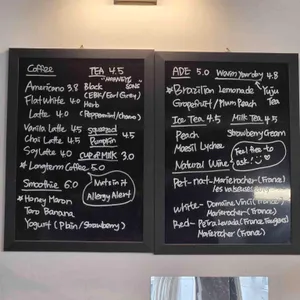 Coffee
Americano 3.8
Flat white 4.0
Latte 4.0
Vanilla Latte 4.5
Chai Latte 4.5
Soy Latte 4.0
Longterm Coffee 5.0
Smoothie 6.0
Honey Maron
Taro Banana
Yogurt (Plain/Strawberry)
TEA 4.5
Black
(EBK/Earl Grey)
Herb
(Peppermint/Chamo)
squeezed 4.5
Pumpkin
CUP OF MILK 3.0
Nuts in it
Allergy Alert
ADE 5.0
Brazilian Lemonade
Grapefruit / Plum Peach
Warm your day 4.8
Yuju
Tea
Ice Tea 4.5
Peach
Maesil Lychee
Milk Tea 4.5
Strawberry Cream
Natural Wine
Feel free to
ask
Pet-nat - Marierocher (France)
White - Domaine Vinci (France)
Marierocher (France)
Red - Petra Levada (France)
Marierocher (France)